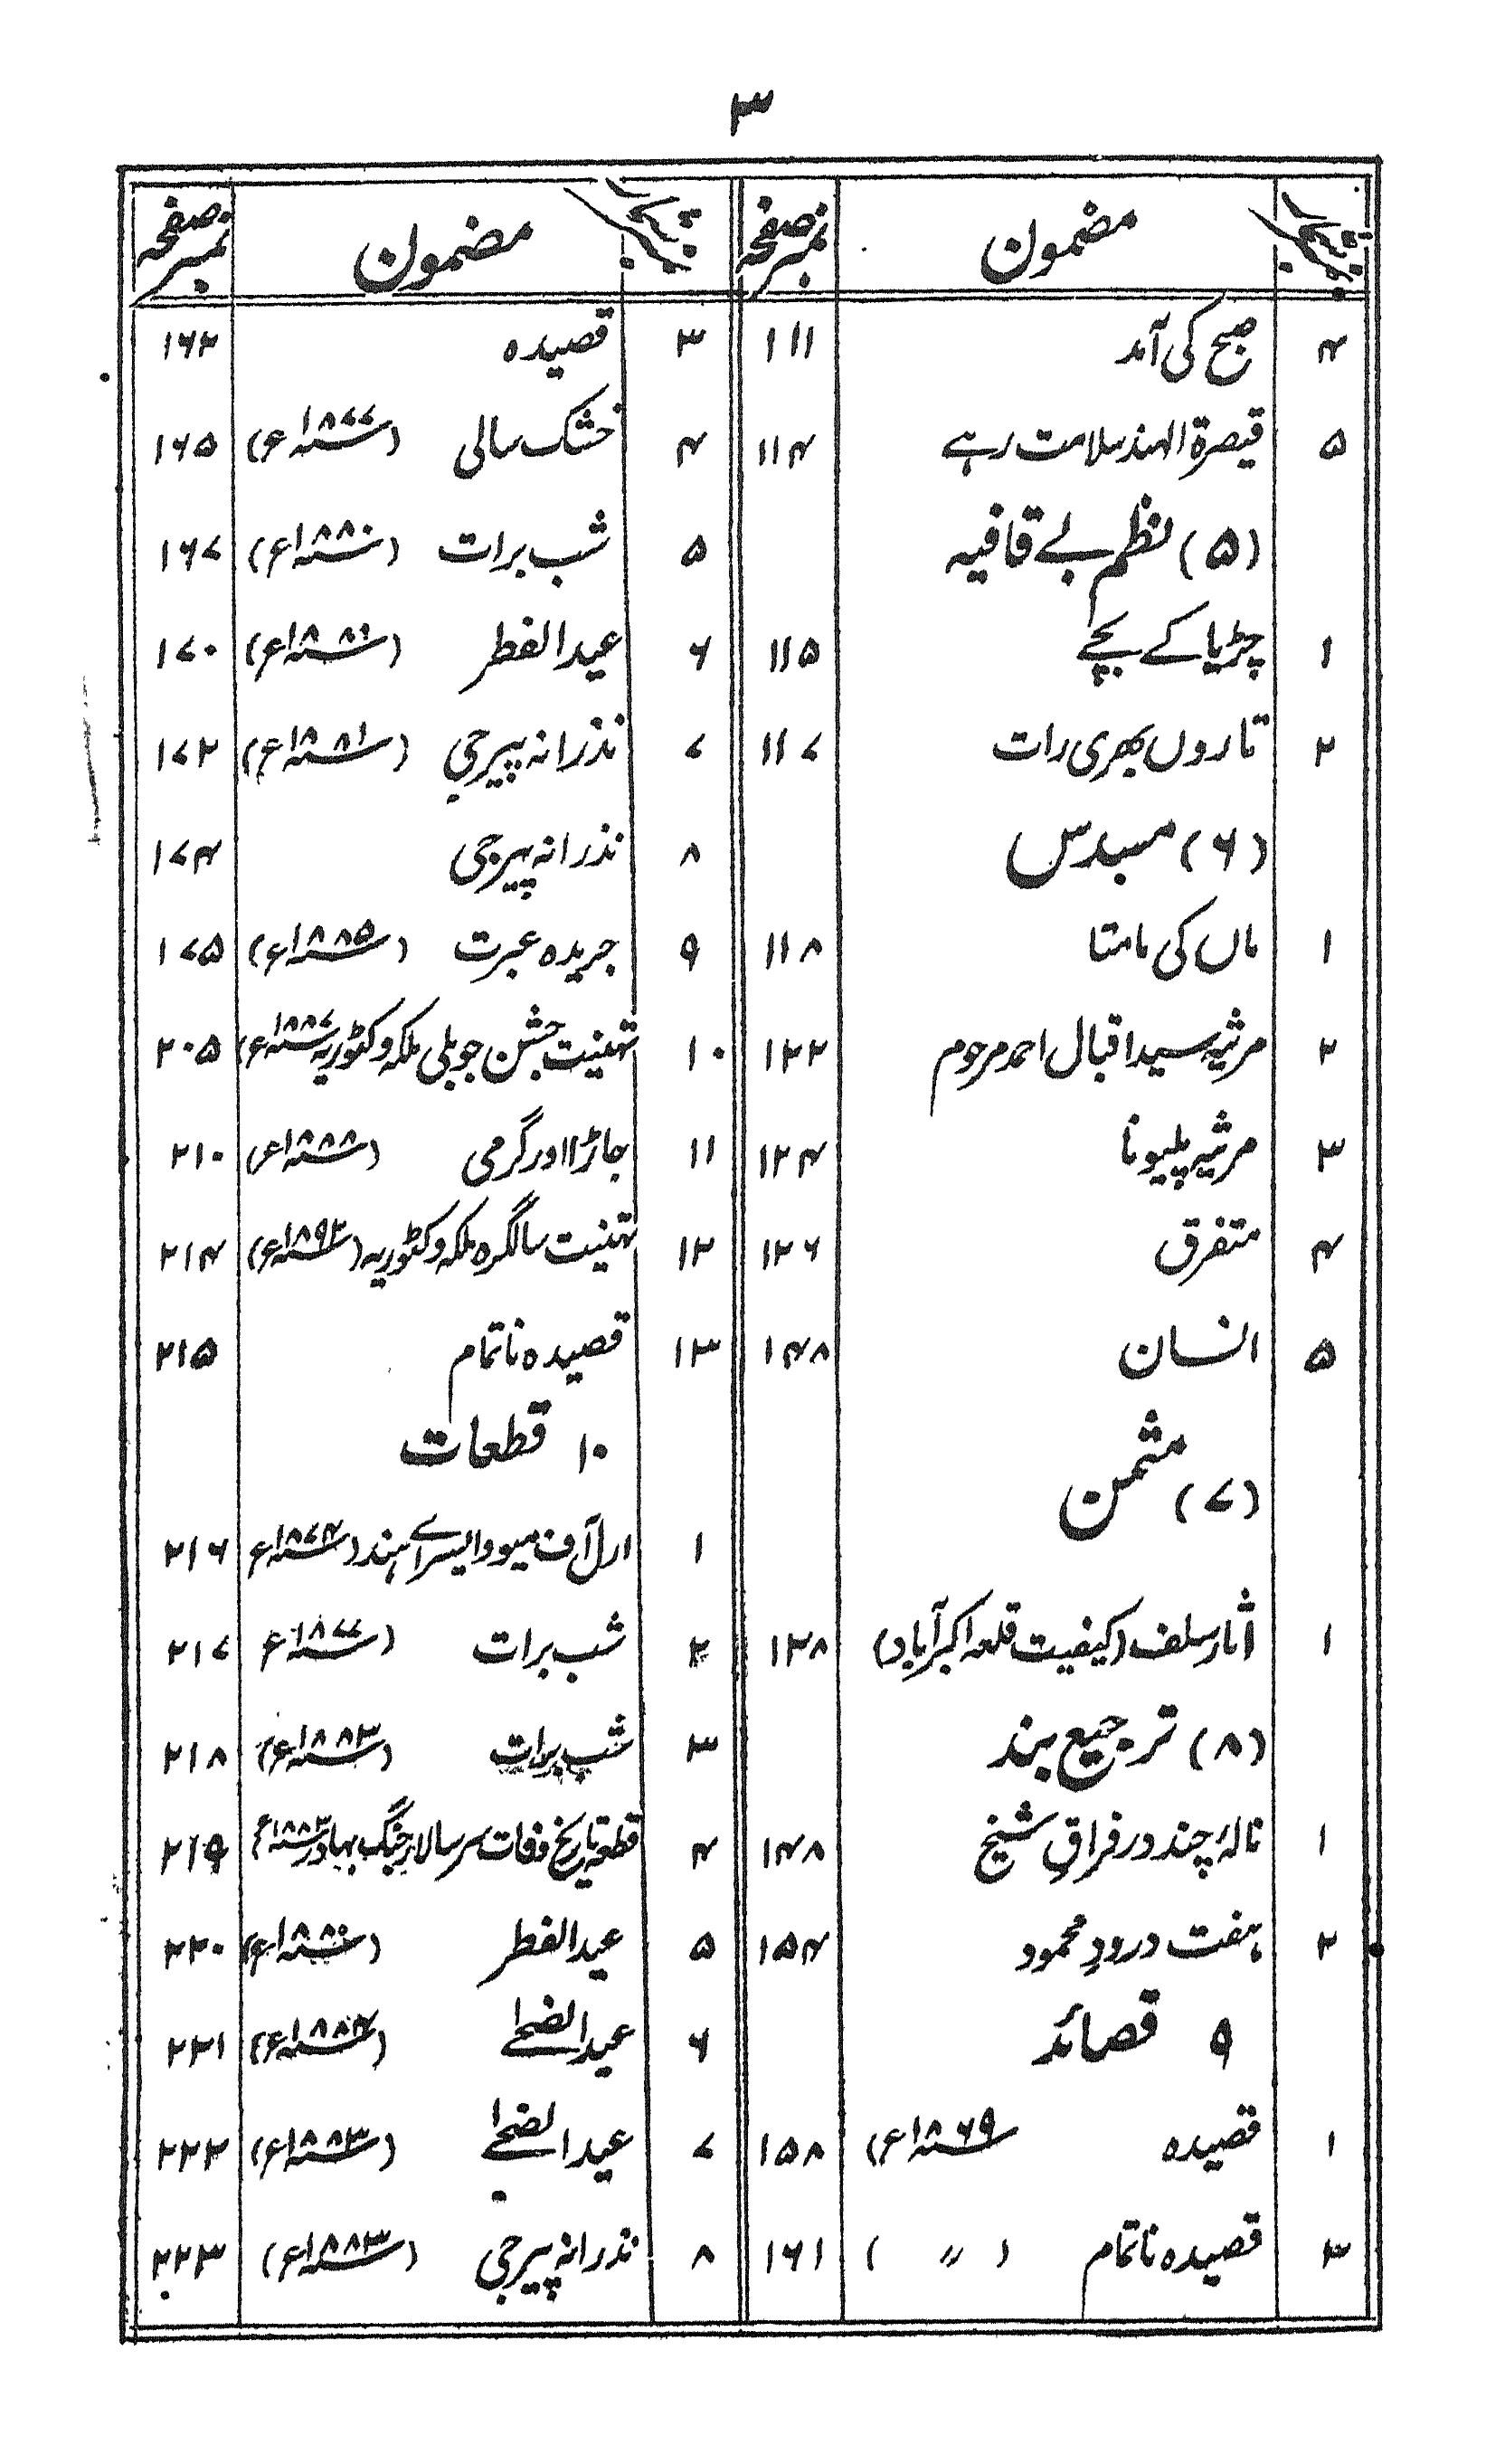 ۳
نمبر شمار	مضمون	نمبر صفحہ
۴	صبح کی آمد	۱۱۱
۵	قیصرۃ الہند سلامت رہے	۱۱۴
(۵) نظم بے قافیہ
۱	چڑیا کے بچے	۱۱۵
۲	تاروں بھری رات	۱۱۷
(۶) مسدس
۱	ماں کی مامتا	۱۱۸
۲	مرثیہ سید اقبال احمد مرحوم	۱۲۲
۳	مرثیہ پلیونا	۱۲۴
۴	متفرق	۱۲۶
۵	انسان	۱۴۸
(۷) مثمن
۱	آثار سلف (کیفیت قلعہ اکبرآباد)	۱۳۸
(۸) ترجیع بند
۱	نالۂ چند در فراقِ شیخ	۱۴۸
۲	ہفت درودِ محمود	۱۵۴
۹ قصائد
۱	قصیدہ ۱۸۶۹ء)	۱۵۸
۳	قصیدہ ناتمام ( 〃 )	۱۶۱
نمبر شمار	مضمون	نمبر صفحہ
۳	قصیدہ	۱۶۲
۴	خشک سالی (۱۸۷۷ء)	۱۶۵
۵	شب برات (۱۸۸۰ء)	۱۶۷
۶	عید الفطر (۱۸۸۱ء)	۱۷۰
۷	نذرانہ پیرجی (۱۸۸۱ء)	۱۷۲
۸	نذرانہ پیرجی	۱۷۴
۹	جریدہ عبرت (۱۸۸۵ء)	۱۷۵
۱۰	تہنیت جشن جوبلی ملکہ وکٹوریہ ۱۸۸۷ء)	۲۰۵
۱۱	جاڑا اور گرمی (۱۸۸۸ء)	۲۱۰
۱۲	تہنیت سالگرہ ملکہ وکٹوریہ (۱۸۹۲ء)	۲۱۴
۱۳	قصیدہ ناتمام	۲۱۵
۱۰ قطعات
۱	ارل آف میو وایسراے ہند (۱۸۷۴ء	۲۱۶
۲	شب برات (۱۸۷۷ء	۲۱۷
۳	شب برات (۱۸۸۳ء)	۲۱۸
۴	قطعہ تاریخ وفات سر سالار جنگ بہادر ۱۸۸۳ء	۲۱۹
۵	عید الفطر (۱۸۸۰ء)	۲۲۰
۶	عید الضحےٰ (۱۸۸۲ء)	۲۲۱
۷	عید الضحےٰ (۱۸۸۳ء)	۲۲۲
۸	نذرانہ پیرجی (۱۸۸۳ء)	۲۲۳